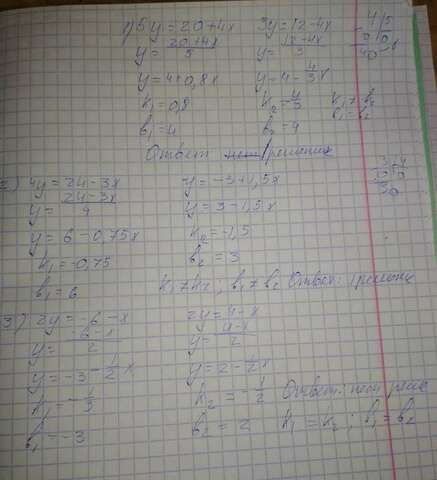 1) 5y = 20 + 4x   3y = 12 - 4x
y = 20+4x / 5   y = 12-4x / 3
y = 4+0,8x   y = 4 - 4/3 x
k₁ = 0,8   k₂ = -4/3   k₁ ≠ k₂
b₁ = 4   b₂ = 4   b₁ = b₂
Ответ 1 решение
2) 4y = 24 - 3x   y = -3+1,5x
y = 24-3x / 4   y = 3 - 1,5x
y = 6 - 0,75x   k₂ = -1,5
k₁ = -0,75   b₂ = 3
b₁ = 6   k₁ ≠ k₂ ; b₁ ≠ b₂ Ответ: 1 решение
3) 2y = -6 - x   2y = 4 - x
y = -6-x / 2   y = 4-x / 2
y = -3 - 1/2 x   y = 2 - 1/2 x
k₁ = -1/2   k₂ = -1/2   Ответ: нет реше
b₁ = -3   b₂ = 2   k₁ = k₂ ; b₁ = b₂